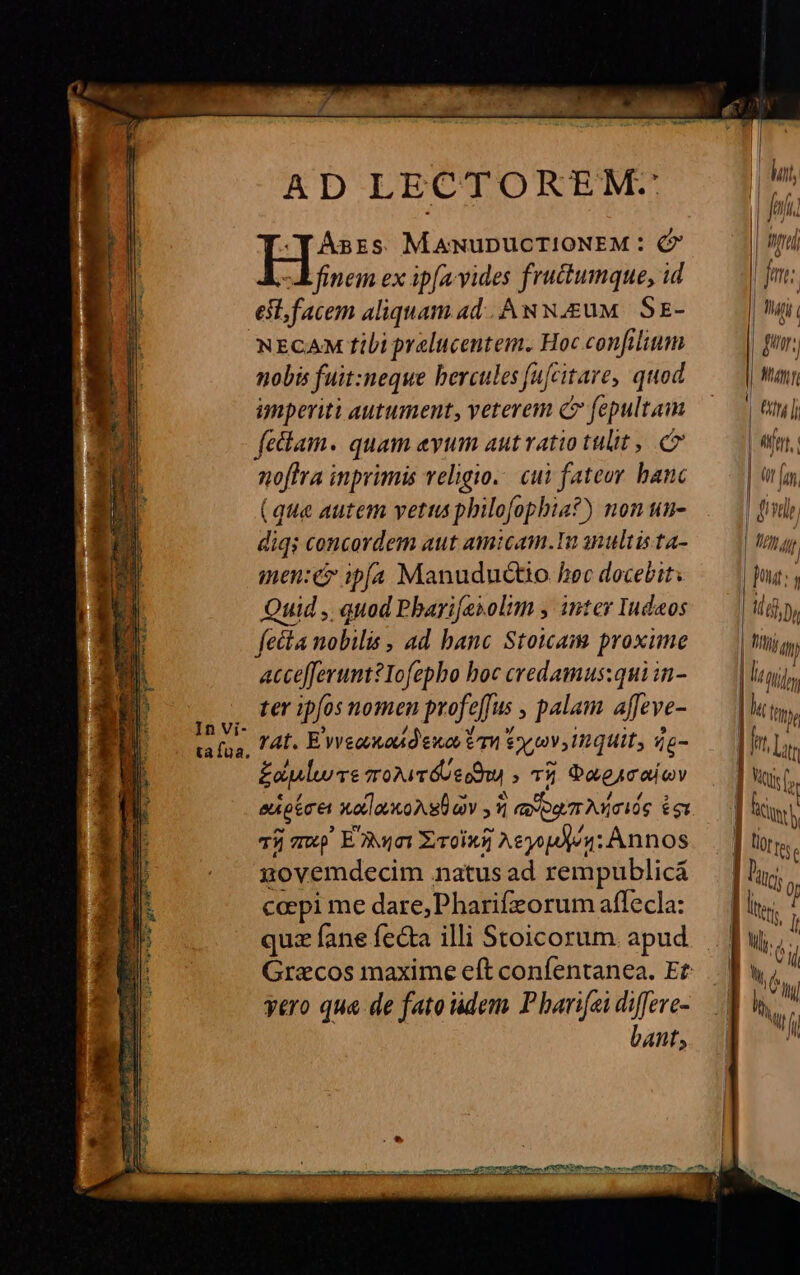 AD LECTOREM.
HABES MANUDUCTIONEM: &
finem ex ipsa vides fructumque, id
est, facem aliquam ad ANNÆUM SE-
NECAM tibi prælucentem. Hoc consilium
nobis fuit: neque hercules suscitare, quod
imperiti autument, veterem & sepultam
sectam. quam ævum aut ratio tulit, &
nostra inprimis religio. cui fateor hanc
(quæ autem vetus philosophia?) non un-
diq; concordem aut amicam. In multis ta-
men: & ipsa Manuductio hoc docebit.
Quid, quod Pharisæi olim, inter Iudæos
secta nobilis, ad hanc Stoicam proxime
accesserunt? Iosepho hoc credamus: qui in-
ter ipsos nomen professus, palam asseve-
In Vi-
ta sua.
rat. Ἐννεακαίδεκα ἔτη ἔχων, inquit, ἠρ-
ξάμην τε πολιτεύεσθαι, τῇ Φαρισαίων
αἱρέσει κατακολουθῶν, ἣ παραπλήσιός ἐστι
τῇ παρ' Ἕλλησι Στοϊκῇ λεγομένῃ: Annos
novemdecim natus ad rempublicā
cœpi me dare, Pharisæorum assecla:
quæ sane secta illi Stoicorum apud
Græcos maxime est consentanea. Et
vero quæ de fato iidem Pharisæi differe-
bant,